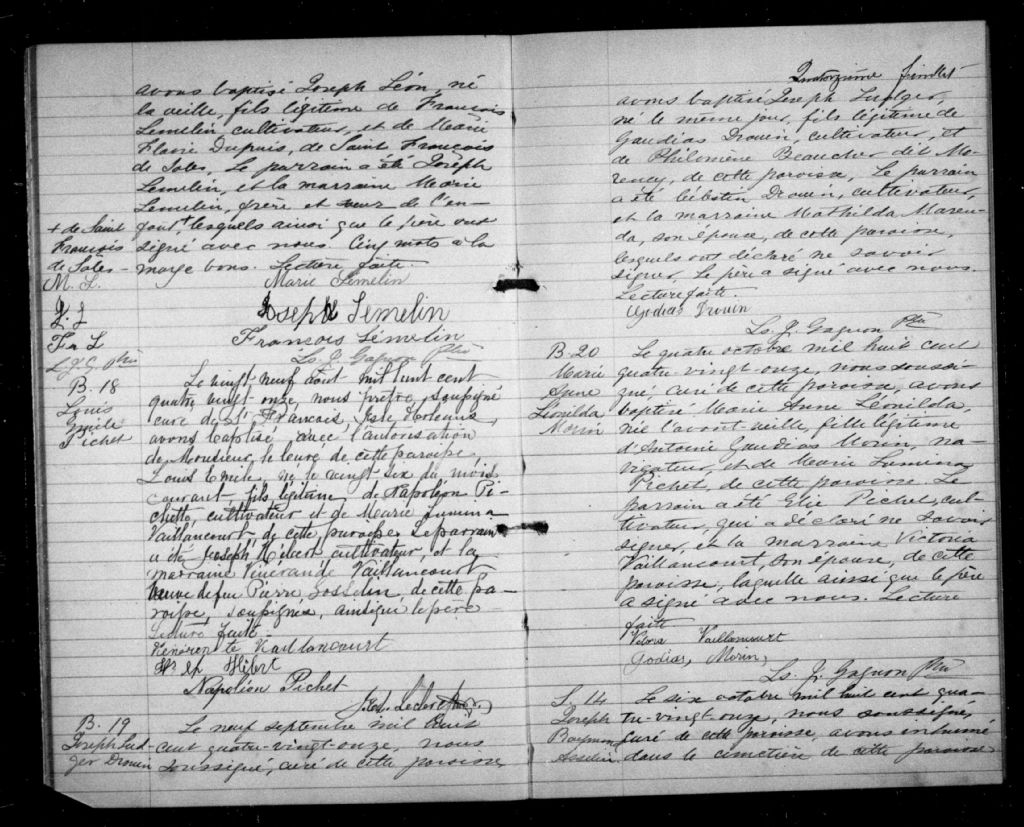 avons baptisé Joseph Léon, né
la veille, fils légitime de François
Lemelin, cultivateur, et de Marie
Flavie Dupuis, de Saint François
de Sales. Le parrain a été Joseph
Lemelin, et la marraine Marie
Lemelin, frère et sœur de l'en-
fant + lesquels ainsi que le père ont
signé avec nous. Cinq mots à la
marge bons. Lecture faite.
+ de Saint
François
de Sales -
M. L.
J. L
Fs L
L J G Ptre
Marie Lemelin
Joseph Lemelin
François Lémelin
Ls. J. Gagnon Ptre
B. 18
Louis
Emile
Pichet
Le vingt-neuf Août mil huit cent
quatre vingt onze, nous prêtre, soussigné
curé de St François, Isle d'Orléans,
avons baptisé avec l'autorisation
de Monsieur le Curé de cette paroisse,
Louis Emile, né le vingt-six du mois
courant, fils légitime de Napoléon Pi-
chette, cultivateur et de Marie
Vaillancourt de cette paroisse. Le parrain
a été Joseph Hébert cultivateur et la
marraine Vénérande Vaillancourt
veuve de feu Pierre Gosselin, de cette pa-
roisse, soussignés, ainsi que le père
Lecture faite.
Vaillancourt
Hébert
Napoléon Pichet
B. 19
Joseph Lud-
ger Drouin
Le neuf septembre mil huit
cent quatre-vingt-onze, nous
soussigné, curé de cette paroisse
Quatorzième feuillet
avons baptisé Joseph Ludger,
né le même jour, fils légitime de
Gaudias Drouin, cultivateur, et
de Philomène Beaucher dit Mo-
rency, de cette paroisse. Le parrain
a été Célestin Drouin, cultivateur,
et la marraine Mathilda Maren-
da, son épouse, de cette paroisse,
lesquels ont déclaré ne savoir
signer. Le père a signé avec nous.
Lecture faite.
Godias Drouin
Ls. J. Gagnon Ptre
B. 20
Marie
Anne
Léonilda
Morin
Le quatre octobre mil huit cent
quatre-vingt-onze, nous soussi-
gné, curé de cette paroisse, avons
baptisé Marie Anne Léonilda
née l'avant-veille, fille légitime
d'Antoine Gaudias Morin, na-
vigateur, et de Marie Lumina
Pichet, de cette paroisse. Le
parrain a été Elie Pichet, cul-
tivateur, qui a déclaré ne savoir
signer, et la marraine Victoria
Vaillancourt, son épouse, de cette
paroisse, laquelle ainsi que le père
a signé avec nous. Lecture
faite
Vaillancourt
Godias Morin,
Ls. J. Gagnon Ptre
S. 14
Joseph
Raymond
Asselin
Le six octobre mil huit cent qua-
tre-vingt-onze, nous soussigné,
curé de cette paroisse, avons inhumé
dans le cimetière de cette paroisse